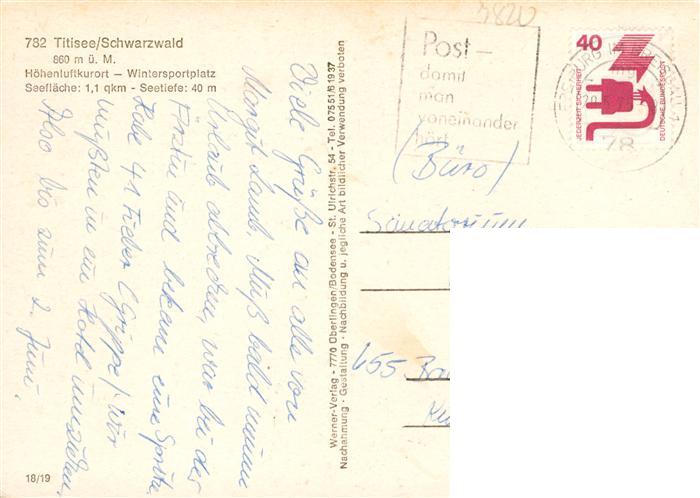 782 Titisee/Schwarzwald
860 m ü. M.
Höhenluftkurort — Wintersportplatz
Seefläche: 1,1 qkm - Seetiefe: 40 m
Viele Grüße an alle von
Margit Laub. Muß bald meinen
Urlaub abbrechen, war bei der
Ärztin und bekam eine Spritze.
Habe 41 Fieber (Grippe). Wir
mußten in ein Hotel umziehen.
Also bis zum 2. Juni.
18/19
Werner-Verlag - 7770 Überlingen/Bodensee - St. Ulrichstr. 54 - Tel. 07551/61937
Nachahmung - Gestaltung - Nachbildung u. jegliche Art bildlicher Verwendung verboten
7820
Post—
damit
man
voneinander
hört
40
JEDERZEIT SICHERHEIT
DEUTSCHE BUNDESPOST
FREIBURG IM BREISGAU
78
(Büro)
Sanatorium
655 Ba